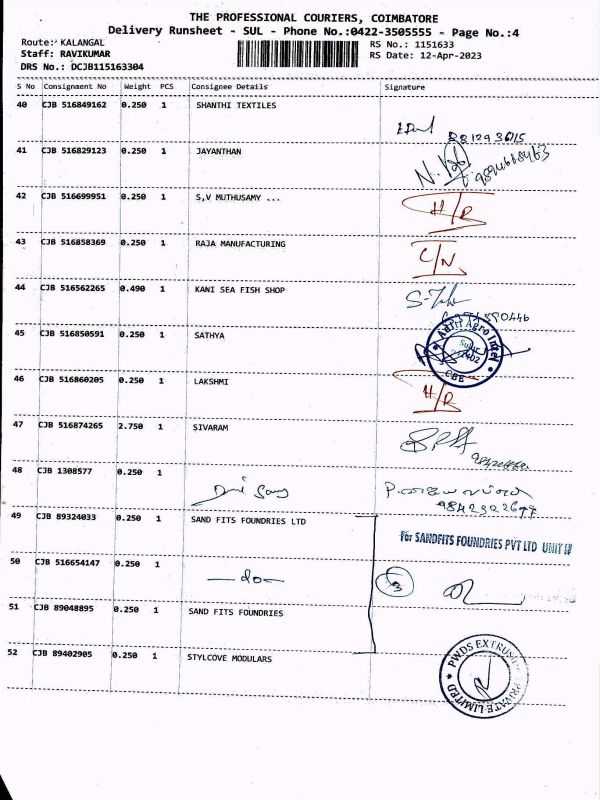 THE PROFESSIONAL COURIERS, COIMBATORE
Delivery Runsheet - SUL - Phone No.:0422-3505555 - Page No.:4
Route: KALANGAL
Staff: RAVIKUMAR
DRS No.: DCJB115163304
RS No.: 1151633
RS Date: 12-Apr-2023
S No Consignment No Weight PCS Consignee Details Signature
40 CJB 516849162 0.250 1 SHANTHI TEXTILES
41 CJB 516829123 0.250 1 JAYANTHAN
42 CJB 516699951 0.250 1 S,V MUTHUSAMY ... H/R
43 CJB 516858369 0.250 1 RAJA MANUFACTURING C/N
44 CJB 516562265 0.490 1 KANI SEA FISH SHOP
45 CJB 516850591 0.250 1 SATHYA
46 CJB 516860205 0.250 1 LAKSHMI H/R
47 CJB 516874265 2.750 1 SIVARAM
48 CJB 1308577 0.250 1
9842322677
49 CJB 89324033 0.250 1 SAND FITS FOUNDRIES LTD
For SANDFITS FOUNDRIES PVT LTD UNIT
50 CJB 516654147 0.250 1 —do— 3
51 CJB 89048895 0.250 1 SAND FITS FOUNDRIES
52 CJB 89402905 0.250 1 STYLCOVE MODULARS
PWDS PRIVATE LIMITED